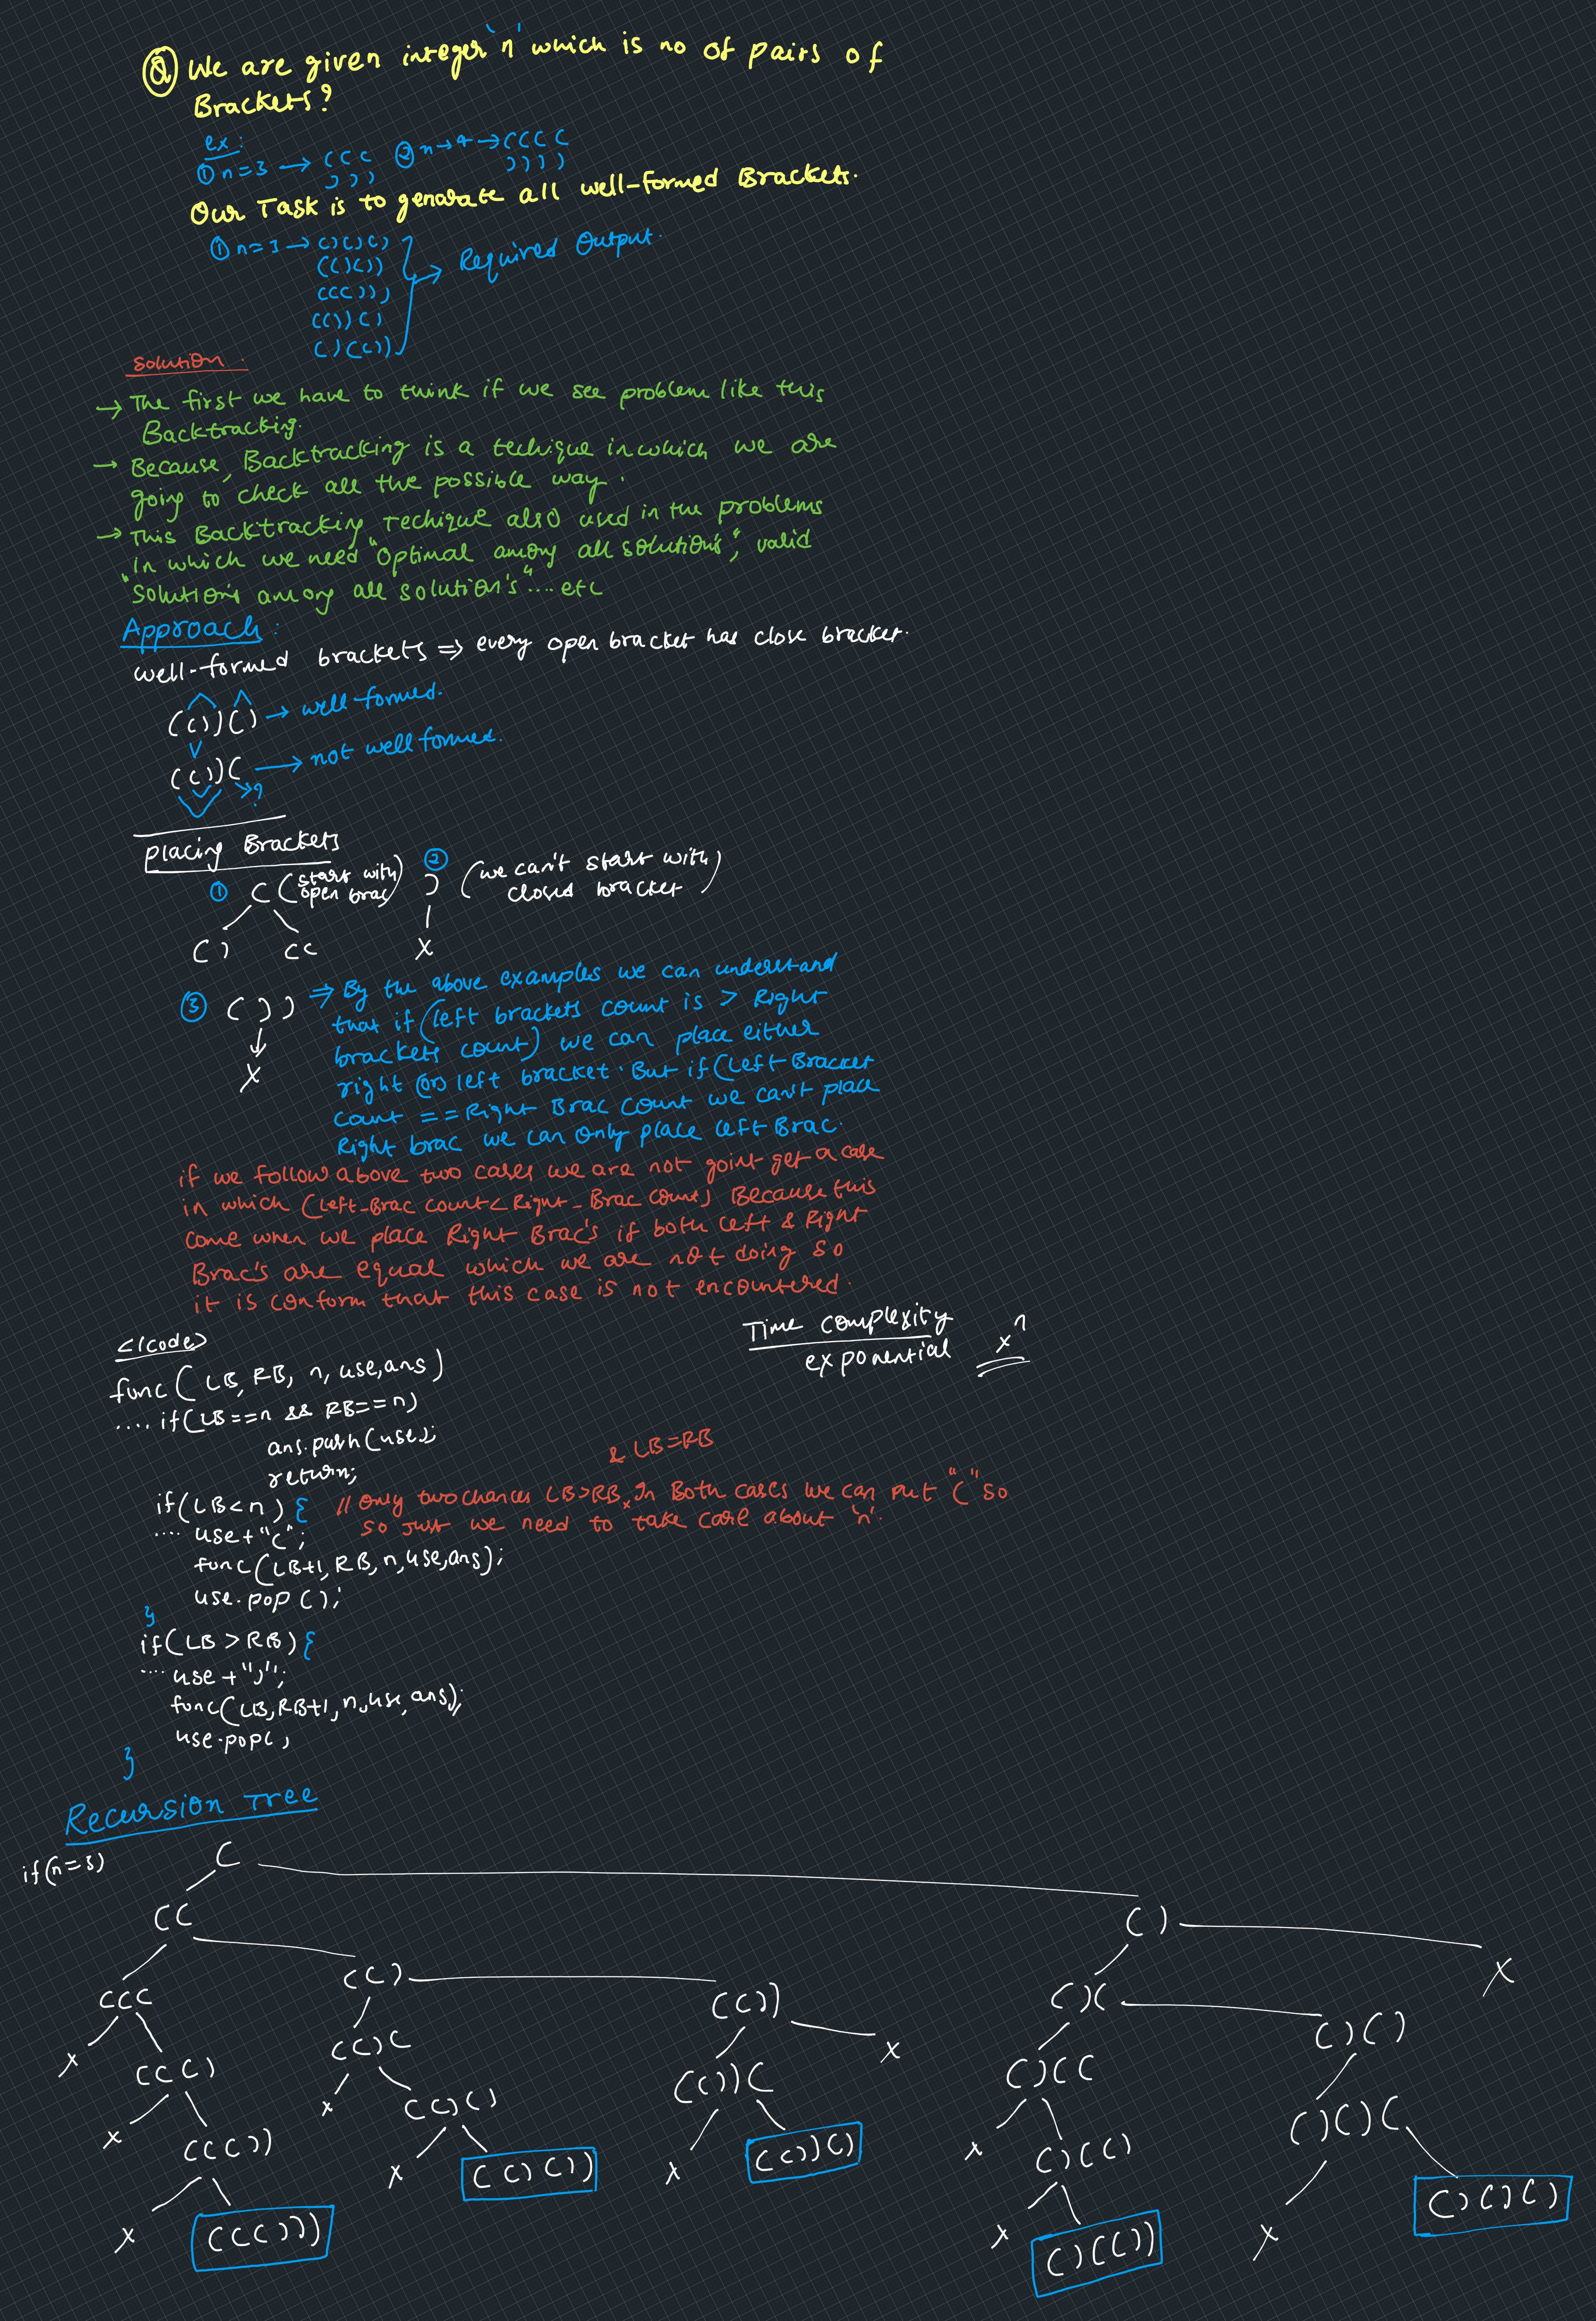 Q We are given integer 'n' which is no of pairs of
Brackets?
ex:
① n=3 → ( ( ( ② n→4 → ( ( ( (
) ) ) ) ) ) )
Our Task is to genarate all well-formed Brackets.
① n=3 → ()()()
(()())
((()))
(())()
()(())
→ Required Output.
Solution.
→ The first we have to think if we see problem like this
Backtracking.
→ Because, Backtracking is a techique in which we are
going to check all the possible way.
→ This Backtracking Techique also used in the problems
in which we need "optimal among all solution's", valid
"Solution's among all solution's".... etc
Approach:
well-formed brackets ⇒ every open bracket has close bracket.
(())() → well-formed.
(())( → not well formed.
→?
Placing Brackets
① ( (start with open brac) ② ) (we can't start with closed bracket)
() (( X
③ ()) ⇒ By the above examples we can understand
that if (left brackets count is > Right
brackets count) we can place either
right (or) left bracket. But if (Left Bracket
count == Right Brac count we can't place
Right brac we can only place left Brac.
X
if we follow above two cases we are not goint get a case
in which (Left-Brac count < Right-Brac count) Because this
come when we place Right Brac's if both left & Right
Brac's are equal which we are not doing so
it is conform that this case is not encountered.
Time complexity
exponential x^n
</code>
func( LB, RB, n, use, ans)
.... if(LB==n && RB==n)
ans.push(use);
return;
& LB=RB
if(LB<n) { // Only two chances LB>RB, In Both cases we can put "(" so
so just we need to take care about 'n'.
.... use+"(";
func(LB+1, RB, n, use, ans);
use.pop();
}
if(LB > RB) {
.... use+")";
func(LB, RB+1, n, use, ans);
use.pop(;
}
Recursion Tree
if(n=3) (
(( ()
((( (() (()) ()( X
X ((() (()( (())( X ()(( ()()
X ((()) X (()() X (())() X ()(() ()()(
X ((())) X (()()) X ()(()) X ()()()